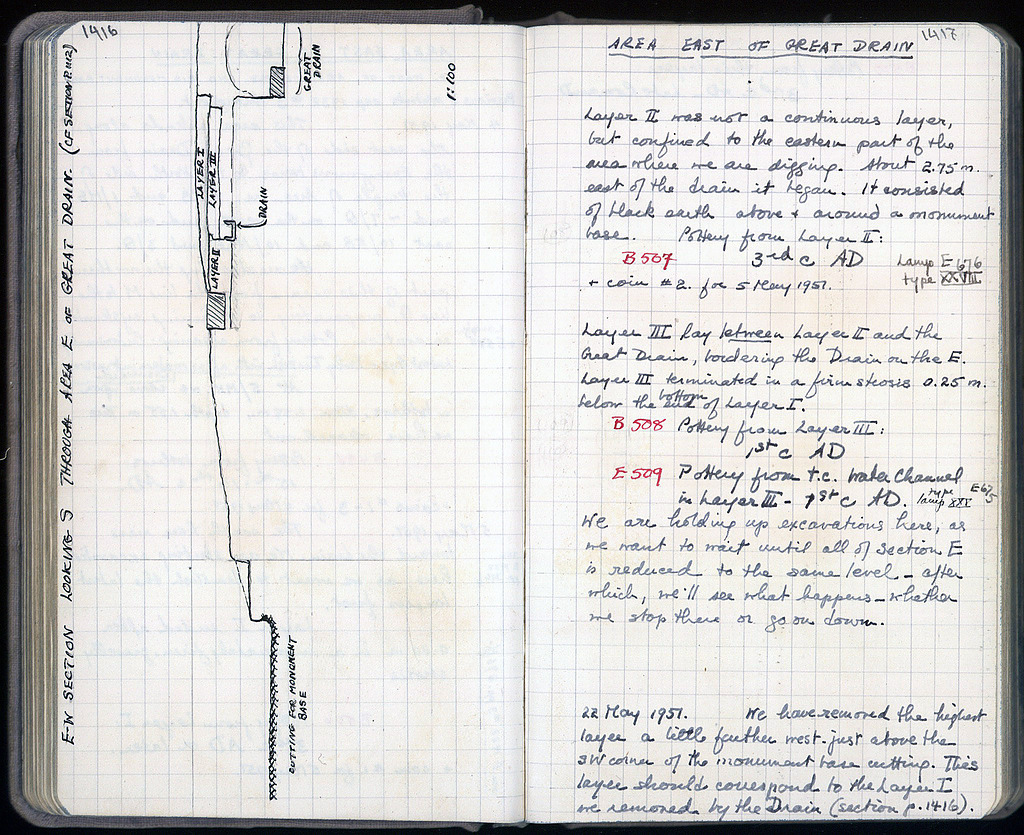 1416
E-W SECTION LOOKING S THROUGH AREA E. OF GREAT DRAIN. (CF SECTION P. 1412)
GREAT
DRAIN
1:100
LAYER I
LAYER III
DRAIN
LAYER II
CUTTING FOR MONUMENT
BASE
1417
AREA EAST OF GREAT DRAIN
Layer II was not a continuous layer,
but confined to the eastern part of the
area where we are digging. About 2.75 m.
east of the drain it began. It consisted
of black earth above + around a monument
base. Pottery from Layer II:
B 507 3rd c AD Lamp E 676
type XXVIII
+ coin #2. for 5 May 1951.
Layer III lay between Layer II and the
Great Drain, bordering the Drain on the E.
Layer III terminated in a firm stosis 0.25 m.
below the end bottom of Layer I.
B 508 Pottery from Layer III:
1st c AD
E 509 Pottery from t.c. water channel
in Layer III - 1st c AD. type lamp XXV E 675
We are holding up excavations here, as
we want to wait until all of Section E
is reduced to the same level - after
which, we'll see what happens - whether
we stop there or go on down.
22 May 1951. We have removed the highest
layer a little further west. just above the
SW corner of the monument base cutting. This
layer should correspond to the Layer I
we removed by the Drain (section p. 1416).